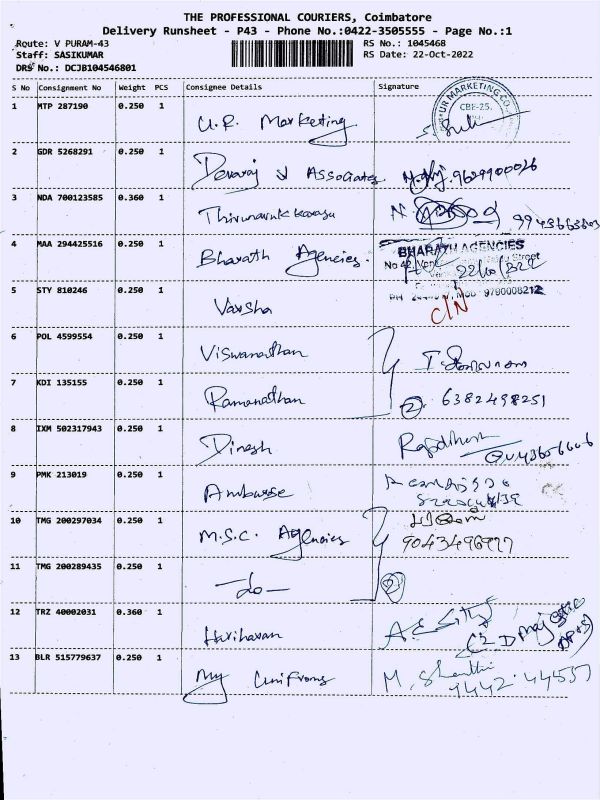 THE PROFESSIONAL COURIERS, Coimbatore
Delivery Runsheet - P43 - Phone No.:0422-3505555 - Page No.:1
Route: V PURAM-43 RS No.: 1045468
Staff: SASIKUMAR RS Date: 22-Oct-2022
DRS No.: DCJB104546801
S No Consignment No Weight PCS Consignee Details Signature
1 MTP 287190 0.250 1 U.R. Marketing
UR MARKETING CO
CBE-25.
2 GDR 5268291 0.250 1 Devaraj & Associates. 9629900026
3 NDA 700123585 0.360 1
4 MAA 294425516 0.250 1 Bharath Agencies.
BHARATH AGENCIES
No 42, Street
9790008212
5 STY 810246 0.250 1 Varsha C/N
6 POL 4599554 0.250 1 Viswanathan
7 KDI 135155 0.250 1 Ramanathan 2 6382498251
8 IXM 502317943 0.250 1 Dinesh
9 PMK 213019 0.250 1
10 TMG 200297034 0.250 1 M.S.C. Agencies
11 TMG 200289435 0.250 1 —do— 2
12 TRZ 40002031 0.360 1 Hariharan
13 BLR 515779637 0.250 1 My M. Shanthi
9442.44557